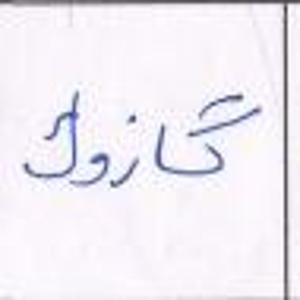 گازوك